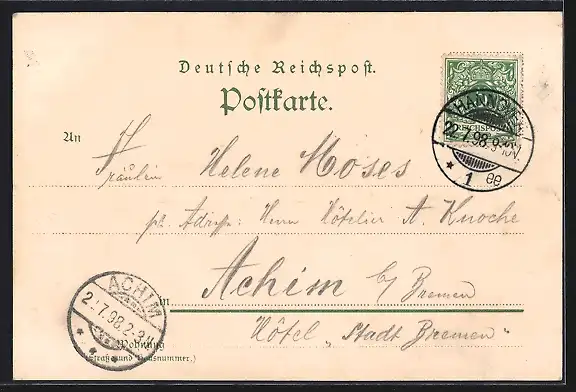 Deutsche Reichspost.
Postkarte.
HANNOVER
22.7.98.9-10V.
* 1 ee
REICHSPOST
An
Fräulein Helene Moses
pr. Adresse: Herrn Hôtelier A. Knoche
ACHIM
7.98.2-3N
in Achim b/ Bremen
Wohnung
(Straße und Hausnummer.)
Hôtel „Stadt Bremen"